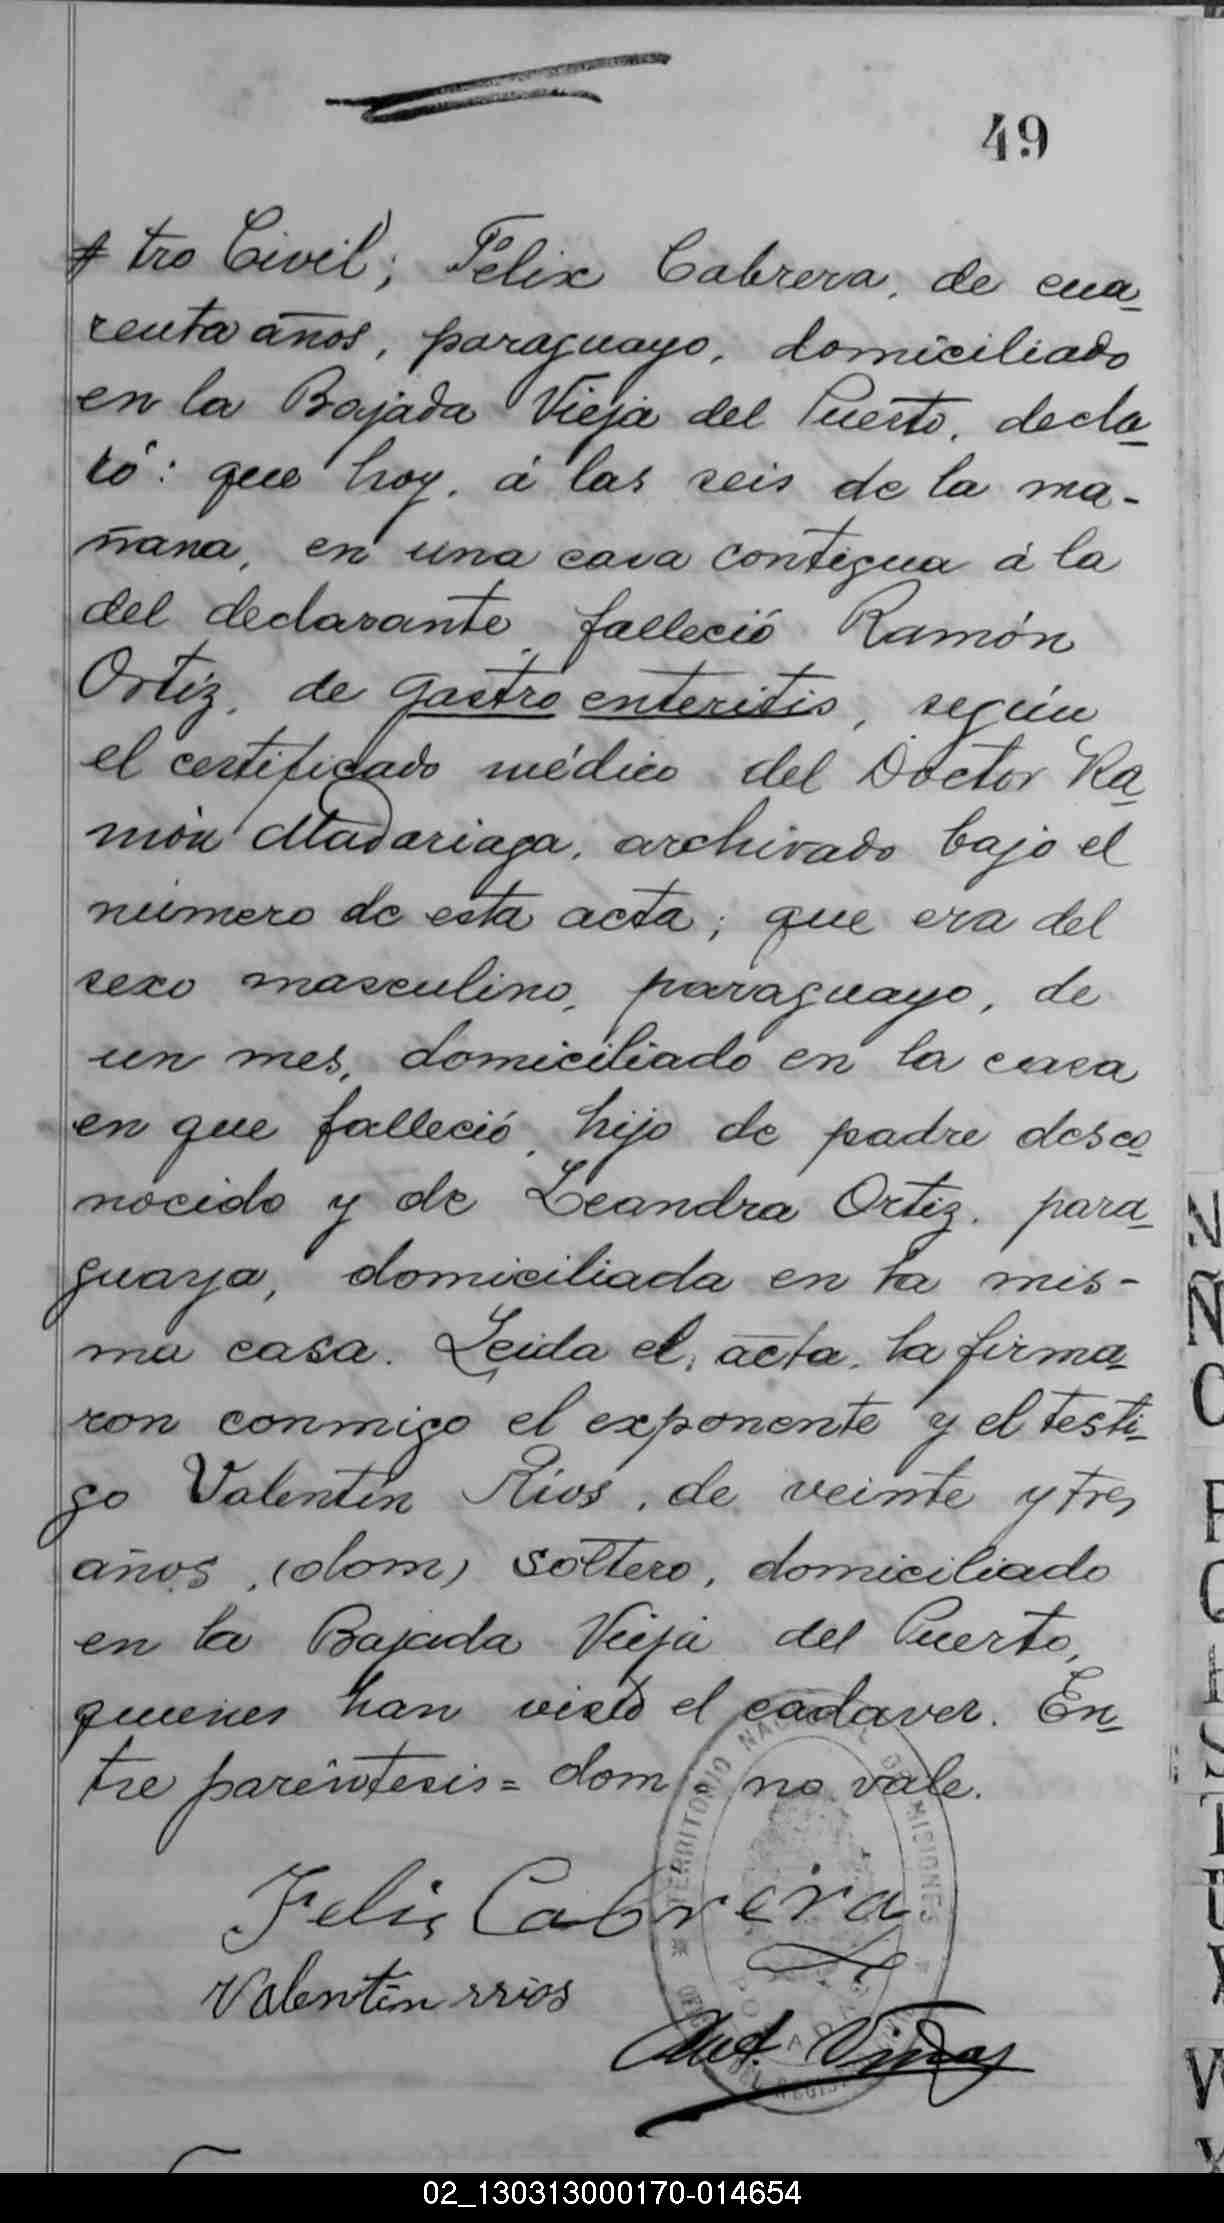 49
tro Civil; Felix Cabrera, de cua-
renta años, paraguayo, domiciliado
en la Bajada Vieja del Puerto, decla-
ró: que hoy, á las seis de la ma-
ñana, en una casa contigua á la
del declarante, falleció Ramón
Ortiz, de gastro enteritis, según
el certificado médico del Doctor Ra-
món Madariaga, archivado bajo el
número de esta acta; que era del
sexo masculino, paraguayo, de
un mes, domiciliado en la casa
en que falleció, hijo de padre desco-
nocido y de Leandra Ortiz, para-
guaya, domiciliada en la mis-
ma casa. Leida el acta, la firma-
ron conmigo el exponente y el testi-
go Valentín Ríos, de veinte y tres
años, (dom) soltero, domiciliado
en la Bajada Vieja del Puerto,
quienes han visto el cadaver. En-
tre paréntesis = dom = no vale.
TERRITORIO NACIONAL DE MISIONES
Felis Cabrera
Valentín rrios
POSADAS
DEL REGIS
N
Ñ
O
P
Q
S
T
U
W
X
02_130313000170-014654